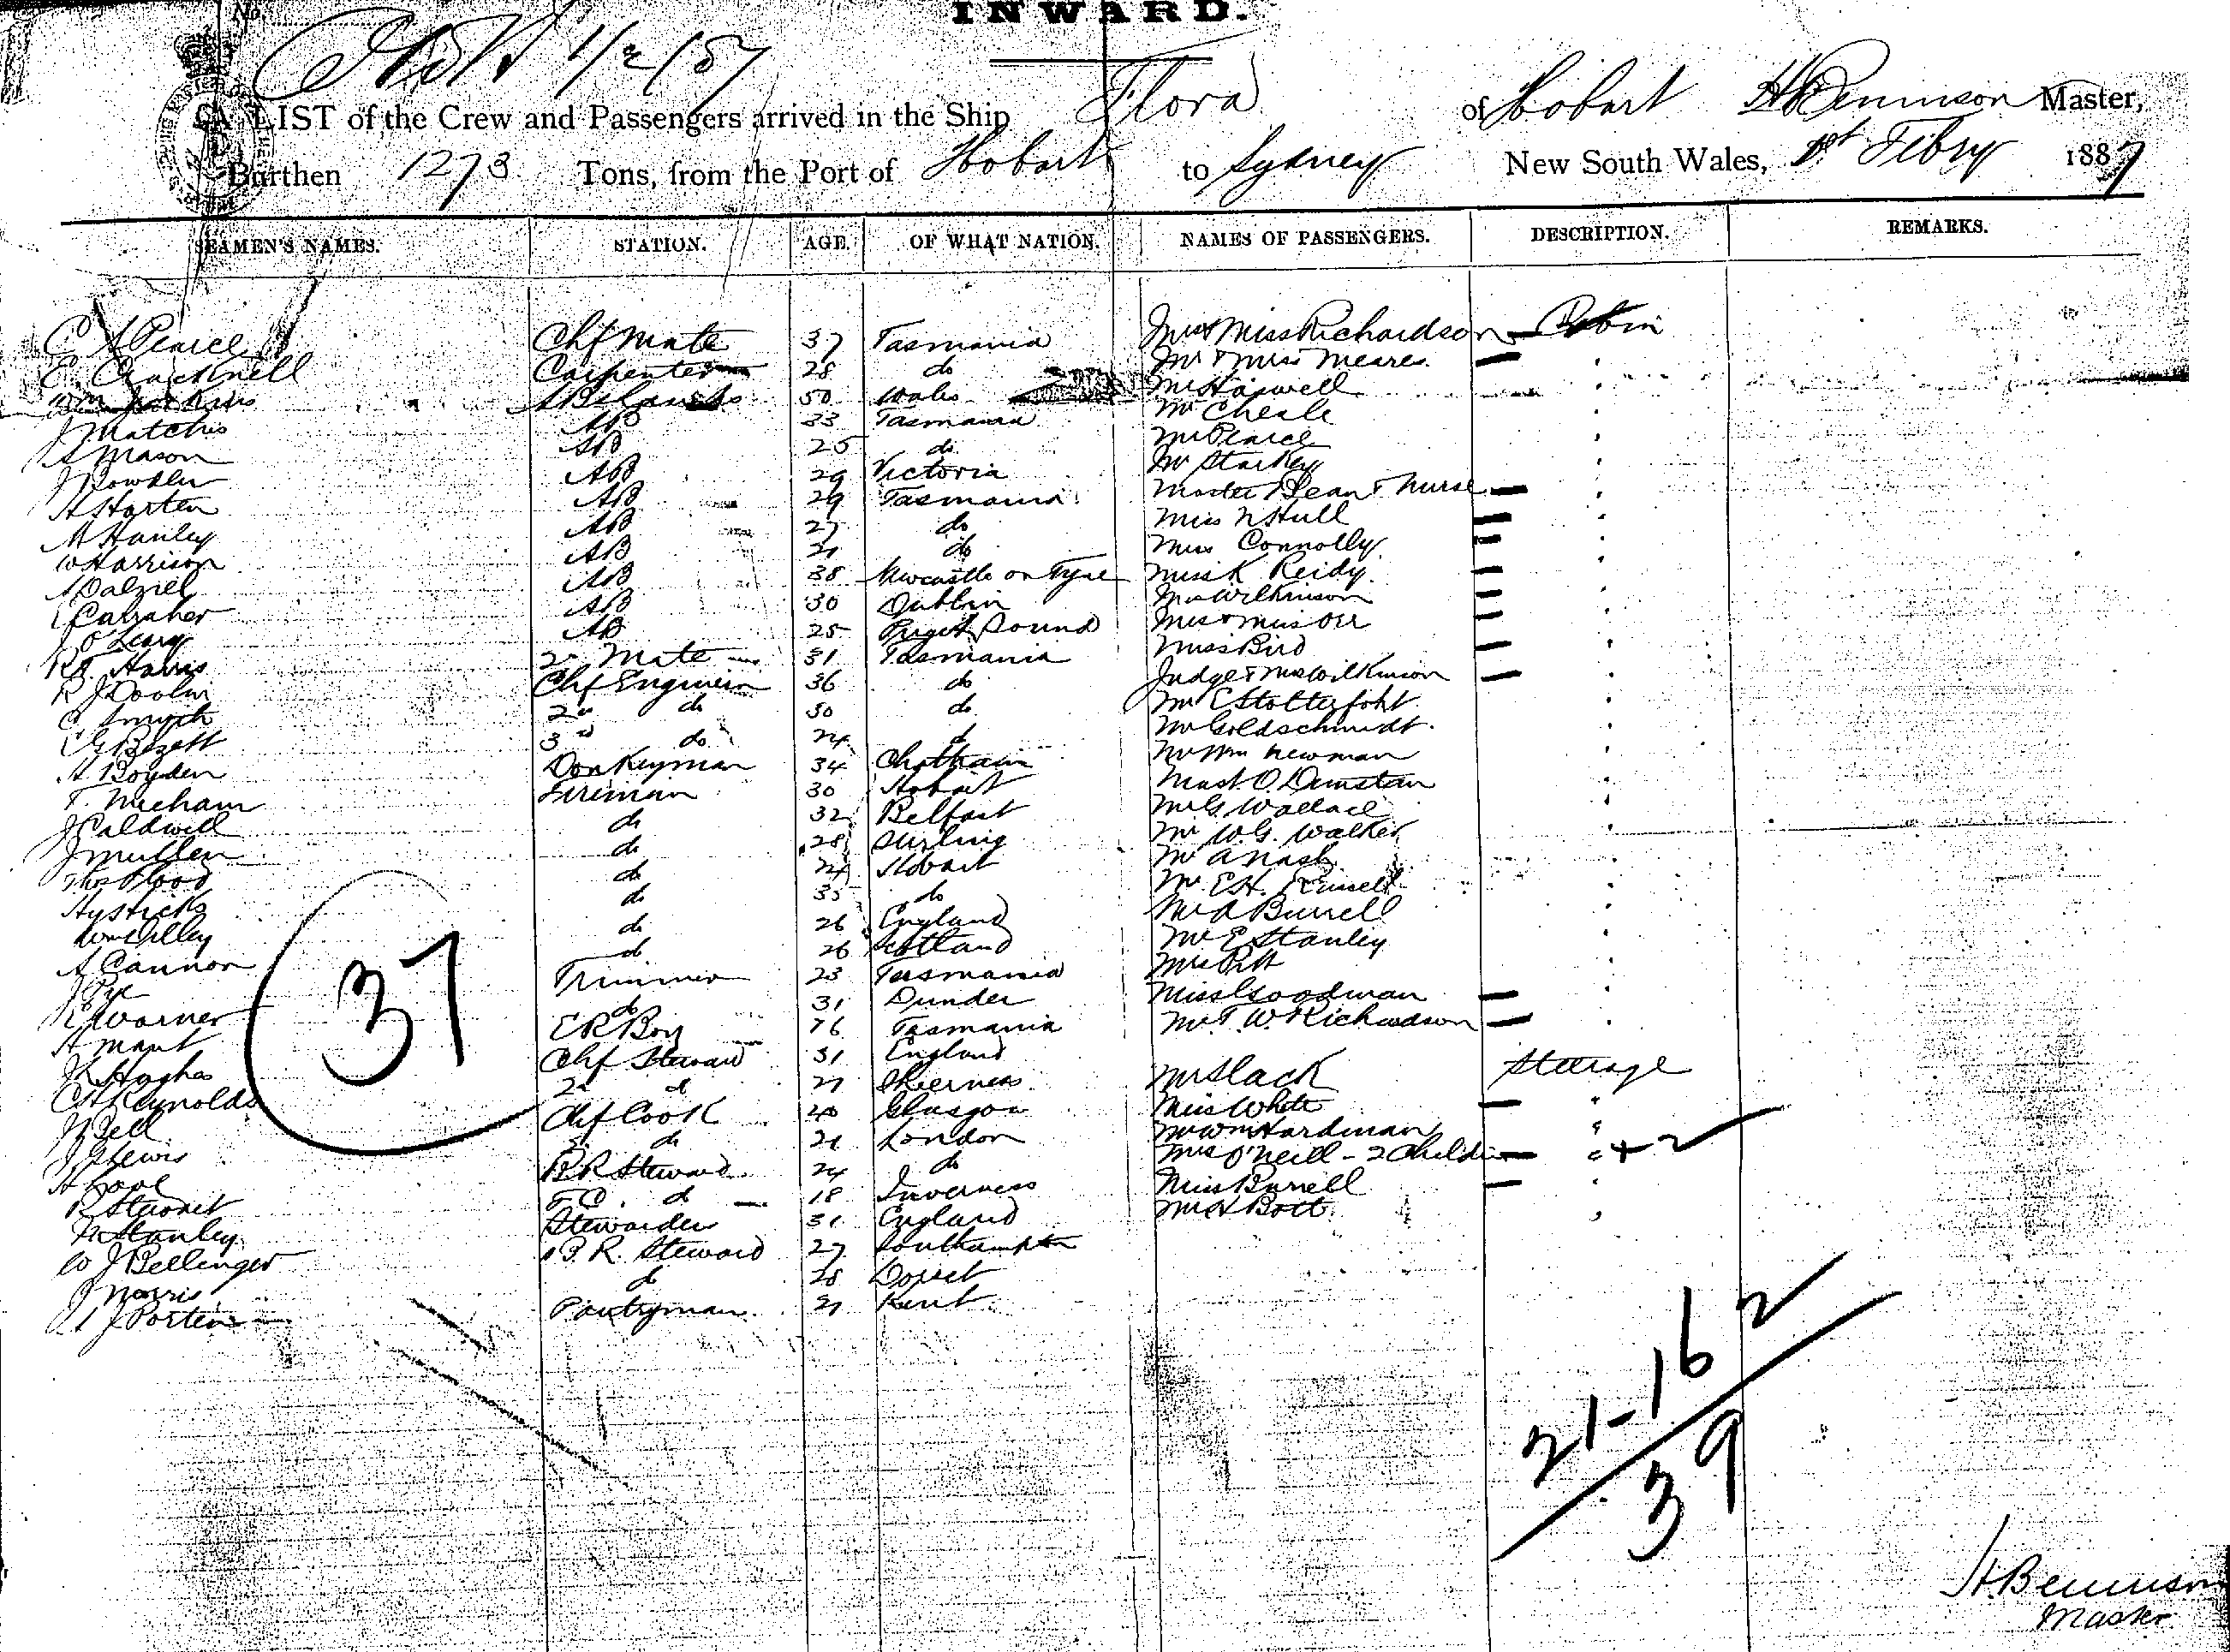 No.
INWARD.
1/2/87
A LIST of the Crew and Passengers arrived in the Ship Flora of Hobart H Bennison Master,
Burthen 1273 Tons, from the Port of Hobart to Sydney New South Wales, 1st Febry 1887
SEAMEN'S NAMES. STATION. AGE. OF WHAT NATION. NAMES OF PASSENGERS. DESCRIPTION. REMARKS.
C A Pearce Chf Mate 37 Tasmania Miss Richardson Cabin
E Cracknell Carpenter 28 do Mr & Miss Meares "
Wm 50 Wales Mr Haswell "
J Matthis AB 33 Tasmania Mr Cheale "
A Mason AB 25 do Mr Pearce "
J Bowden AB 29 Victoria Mr Starkey "
A Harten AB 29 Tasmania Master Bean & Nurse "
M Hanley AB 27 do Miss N Hull "
W Harrison AB 21 do Miss Connolly "
A Dalziel AB 38 Newcastle on Tyne Miss K Reidy "
Carraher AB 30 Dublin Wilkinson "
J O'Leary AB 25 Puget Sound Mrs & Miss Orr "
Harris 2nd Mate 31 Tasmania Miss Bird "
R J Doolin Chf Engineer 36 do Judge & Mrs Wilkinson "
C Smyth 2nd do 30 do Mr C Stolterfoht "
G Bezett 3rd do 24 do Mr Goldschmidt "
A Boyden Donkeyman 34 Chatham Mr Wm Newman "
T. Mecham Fireman 30 Hobart Mast O Dunstan "
J Caldwell do 32 Belfast Mr G Wallace "
J Mullen do 28 Stirling Mr W.G. Walker "
Thos Flood do 24 Hobart Mr A Nash "
Hy Hicks do 35 do Mr E.H. Russell "
Wm Lilley do 26 England Mr A Burrell "
A Cannon do 26 Scotland Mr E Stanley "
J Pye Trimmer 23 Tasmania Mrs Pitt "
Warner do 31 Dundee Miss Goodman "
A Mant E R Boy 16 Tasmania Mr T. W. Richardson "
Hughes Chf Steward 31 England
C H Reynolds 2nd do 27 Mr Slack Steerage
J Bell Chf Cook 20 Glasgow Miss White "
J G Lewis 2nd do 21 London Mr Wm Hardman "
A Love do 24 do Mrs O'Neill - 2 Children " + 2
R Steward 18 Inverness Miss Burrell "
M Stanley Stewardess 31 England Bott "
W J Bellinger B.R. Steward 27 Southampton
J Norris do 28 Dorset
J Porter Pantryman 21 Kent
37
21-16 2
39
H Bennison
Master